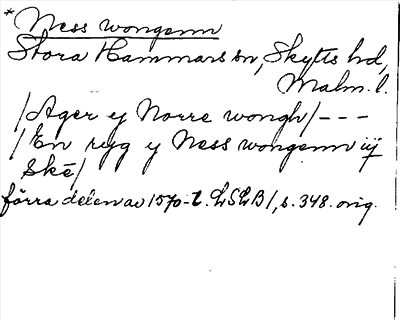 * Ness wongenn
Stora Hammars sn, Skytts hd,
Malm. l.
/Ager ej Norre wongh/ - - -
/En ryg y Ness wongenn iij
Skē/
förra delen av 1570-t. LSLB1, s. 348. orig.